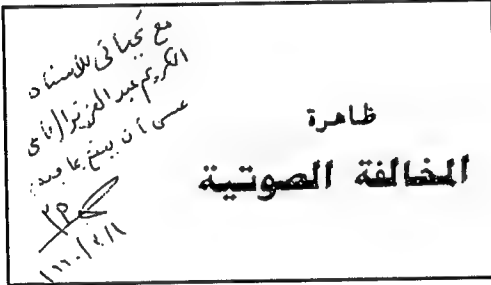 مع تحياتي للأستاذ
الكريم عبد العزيز
عسى أن ينتفع بما فيه
ظاهرة
المخالفة الصوتية